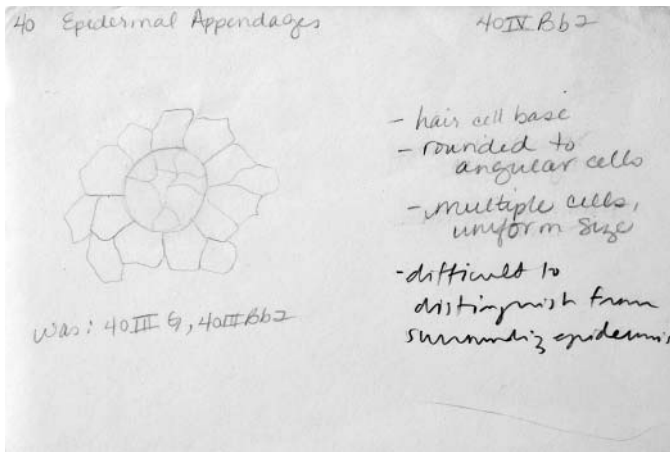 40 Epidermal Appendages
40IV Bb2
- hair cell base
- rounded to
angular cells
- multiple cells,
uniform size
- difficult to
distinguish from
surrounding epidermis
was: 40III G, 40III Bb2